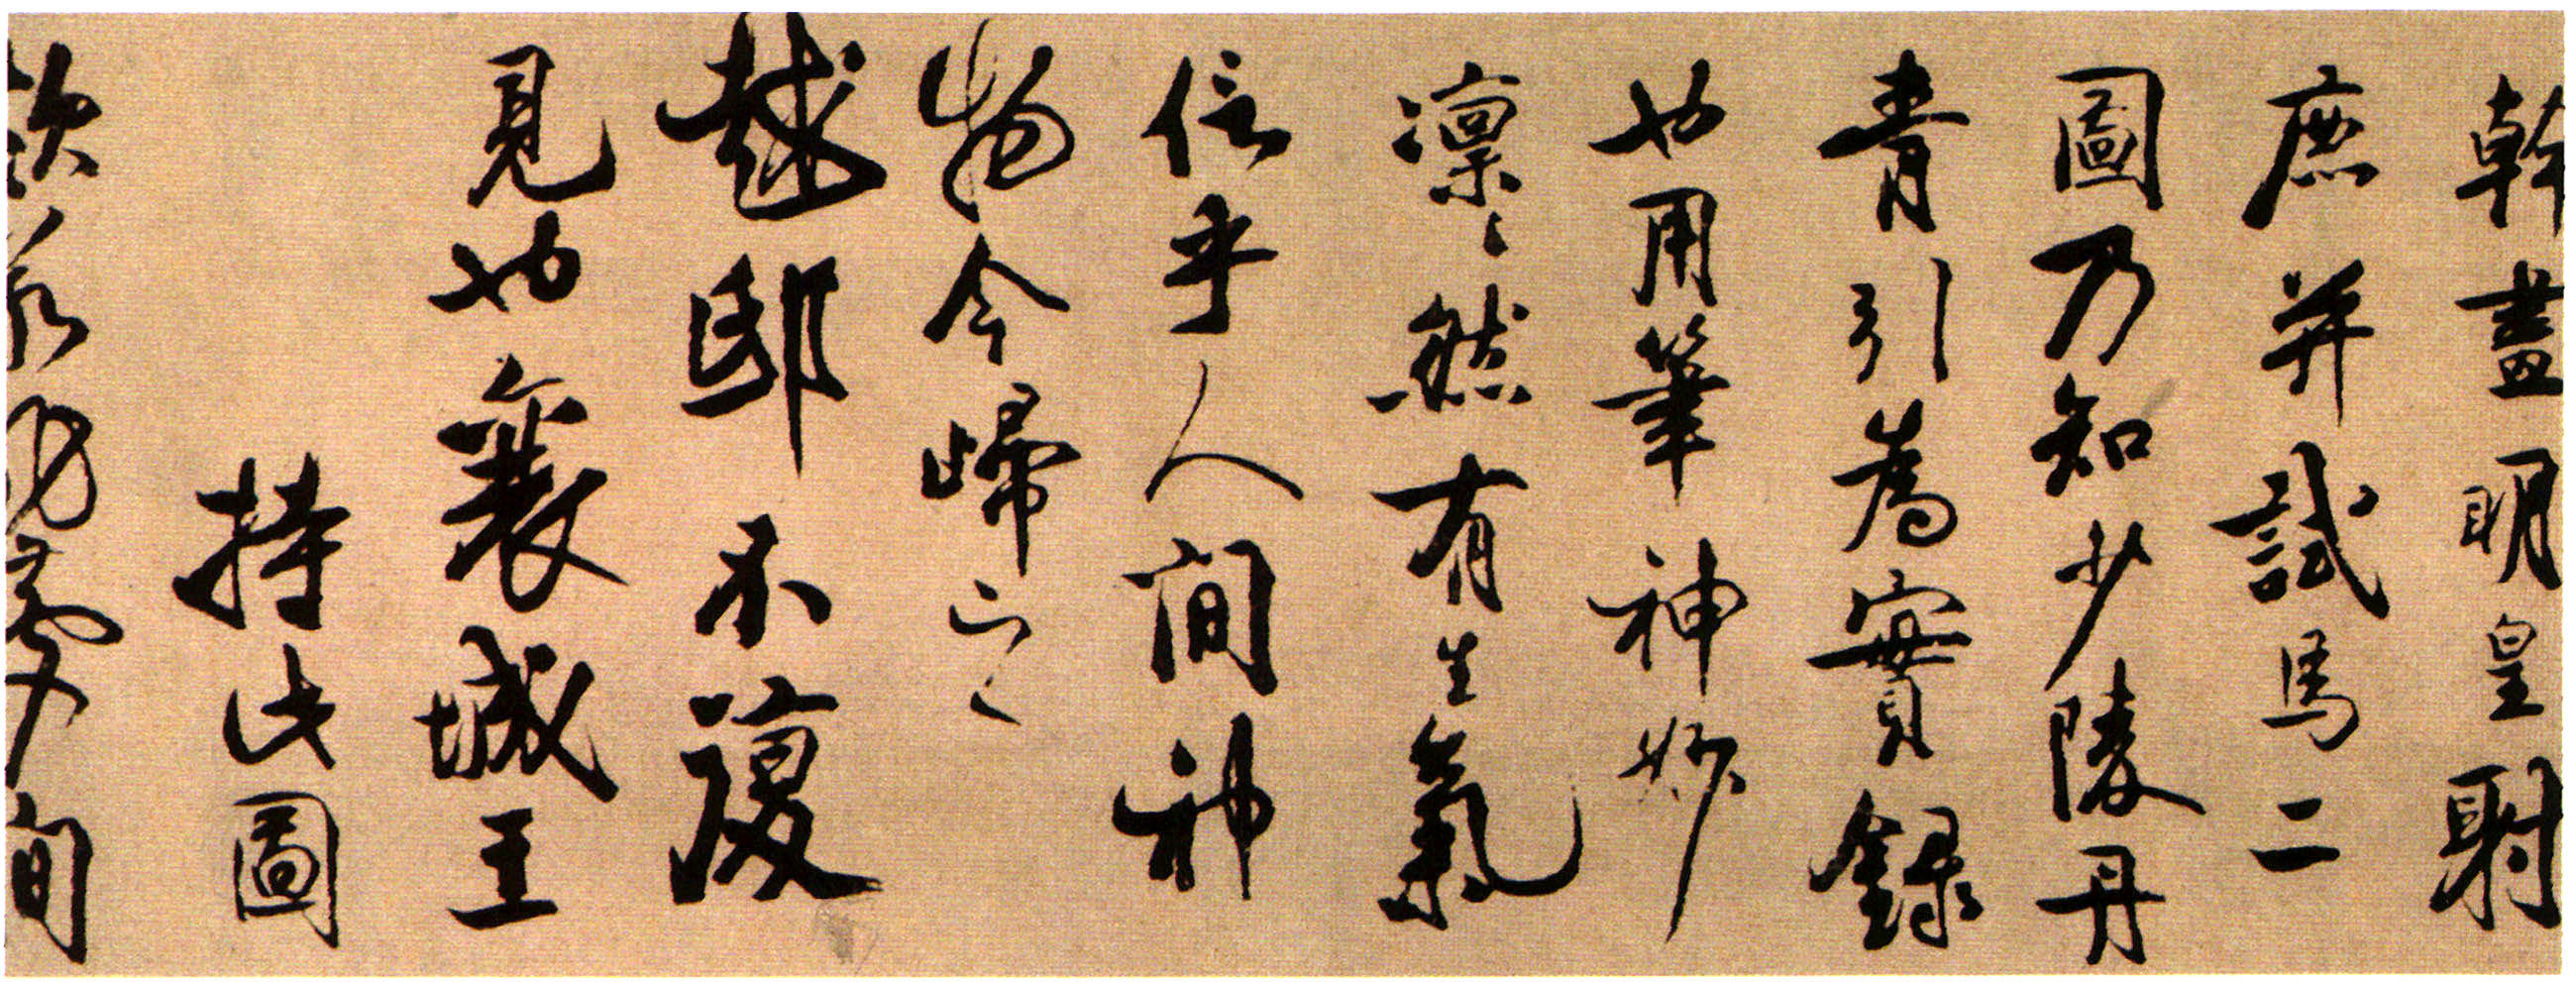 幹畫明皇射
鹿并試馬二
圖乃知少陵丹
青引為實錄
也用筆神妙
凜凜然有生氣
信乎人間神
物今歸之
越邸不復
見也襄城王
持此圖
夢間